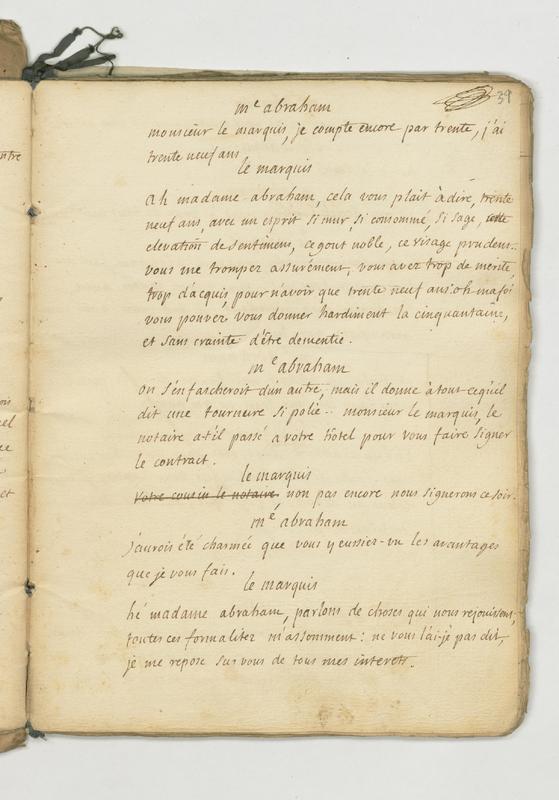 39
me abraham
monsieur le marquis, je compte encore par trente, j'ai
trente neuf ans
le marquis
ah madame abraham, cela vous plait à dire, trente
neuf ans, avec un esprit si mur, si consommé, si sage, cette
elevation de sentimens, ce gout noble, ce visage prudent..
vous me trompez assurément, vous avez trop de merite,
trop d'acquis pour n'avoir que trente neuf ans: oh ma foi
vous pouvez vous donner hardiment la cinquantaine,
et sans crainte d'être dementie.
me abraham
on s'en fascheroit d'un autre, mais il donne à tout ce qu'il
dit une tournure si polie.. monsieur le marquis, le
notaire a-t'il passé a votre hôtel pour vous faire signer
le contract.
le marquis
votre cousin le notaire. non pas encore nous signerons ce soir.
me abraham
j'aurois été charmée que vous y eussiez vu les avantages
que je vous fais.
le marquis
hé madame abraham, parlons de choses qui nous rejouissent,
toutes ces formalitez m'assomment: ne vous l'ai-je pas dit,
je me repose sur vous de tous mes interets.